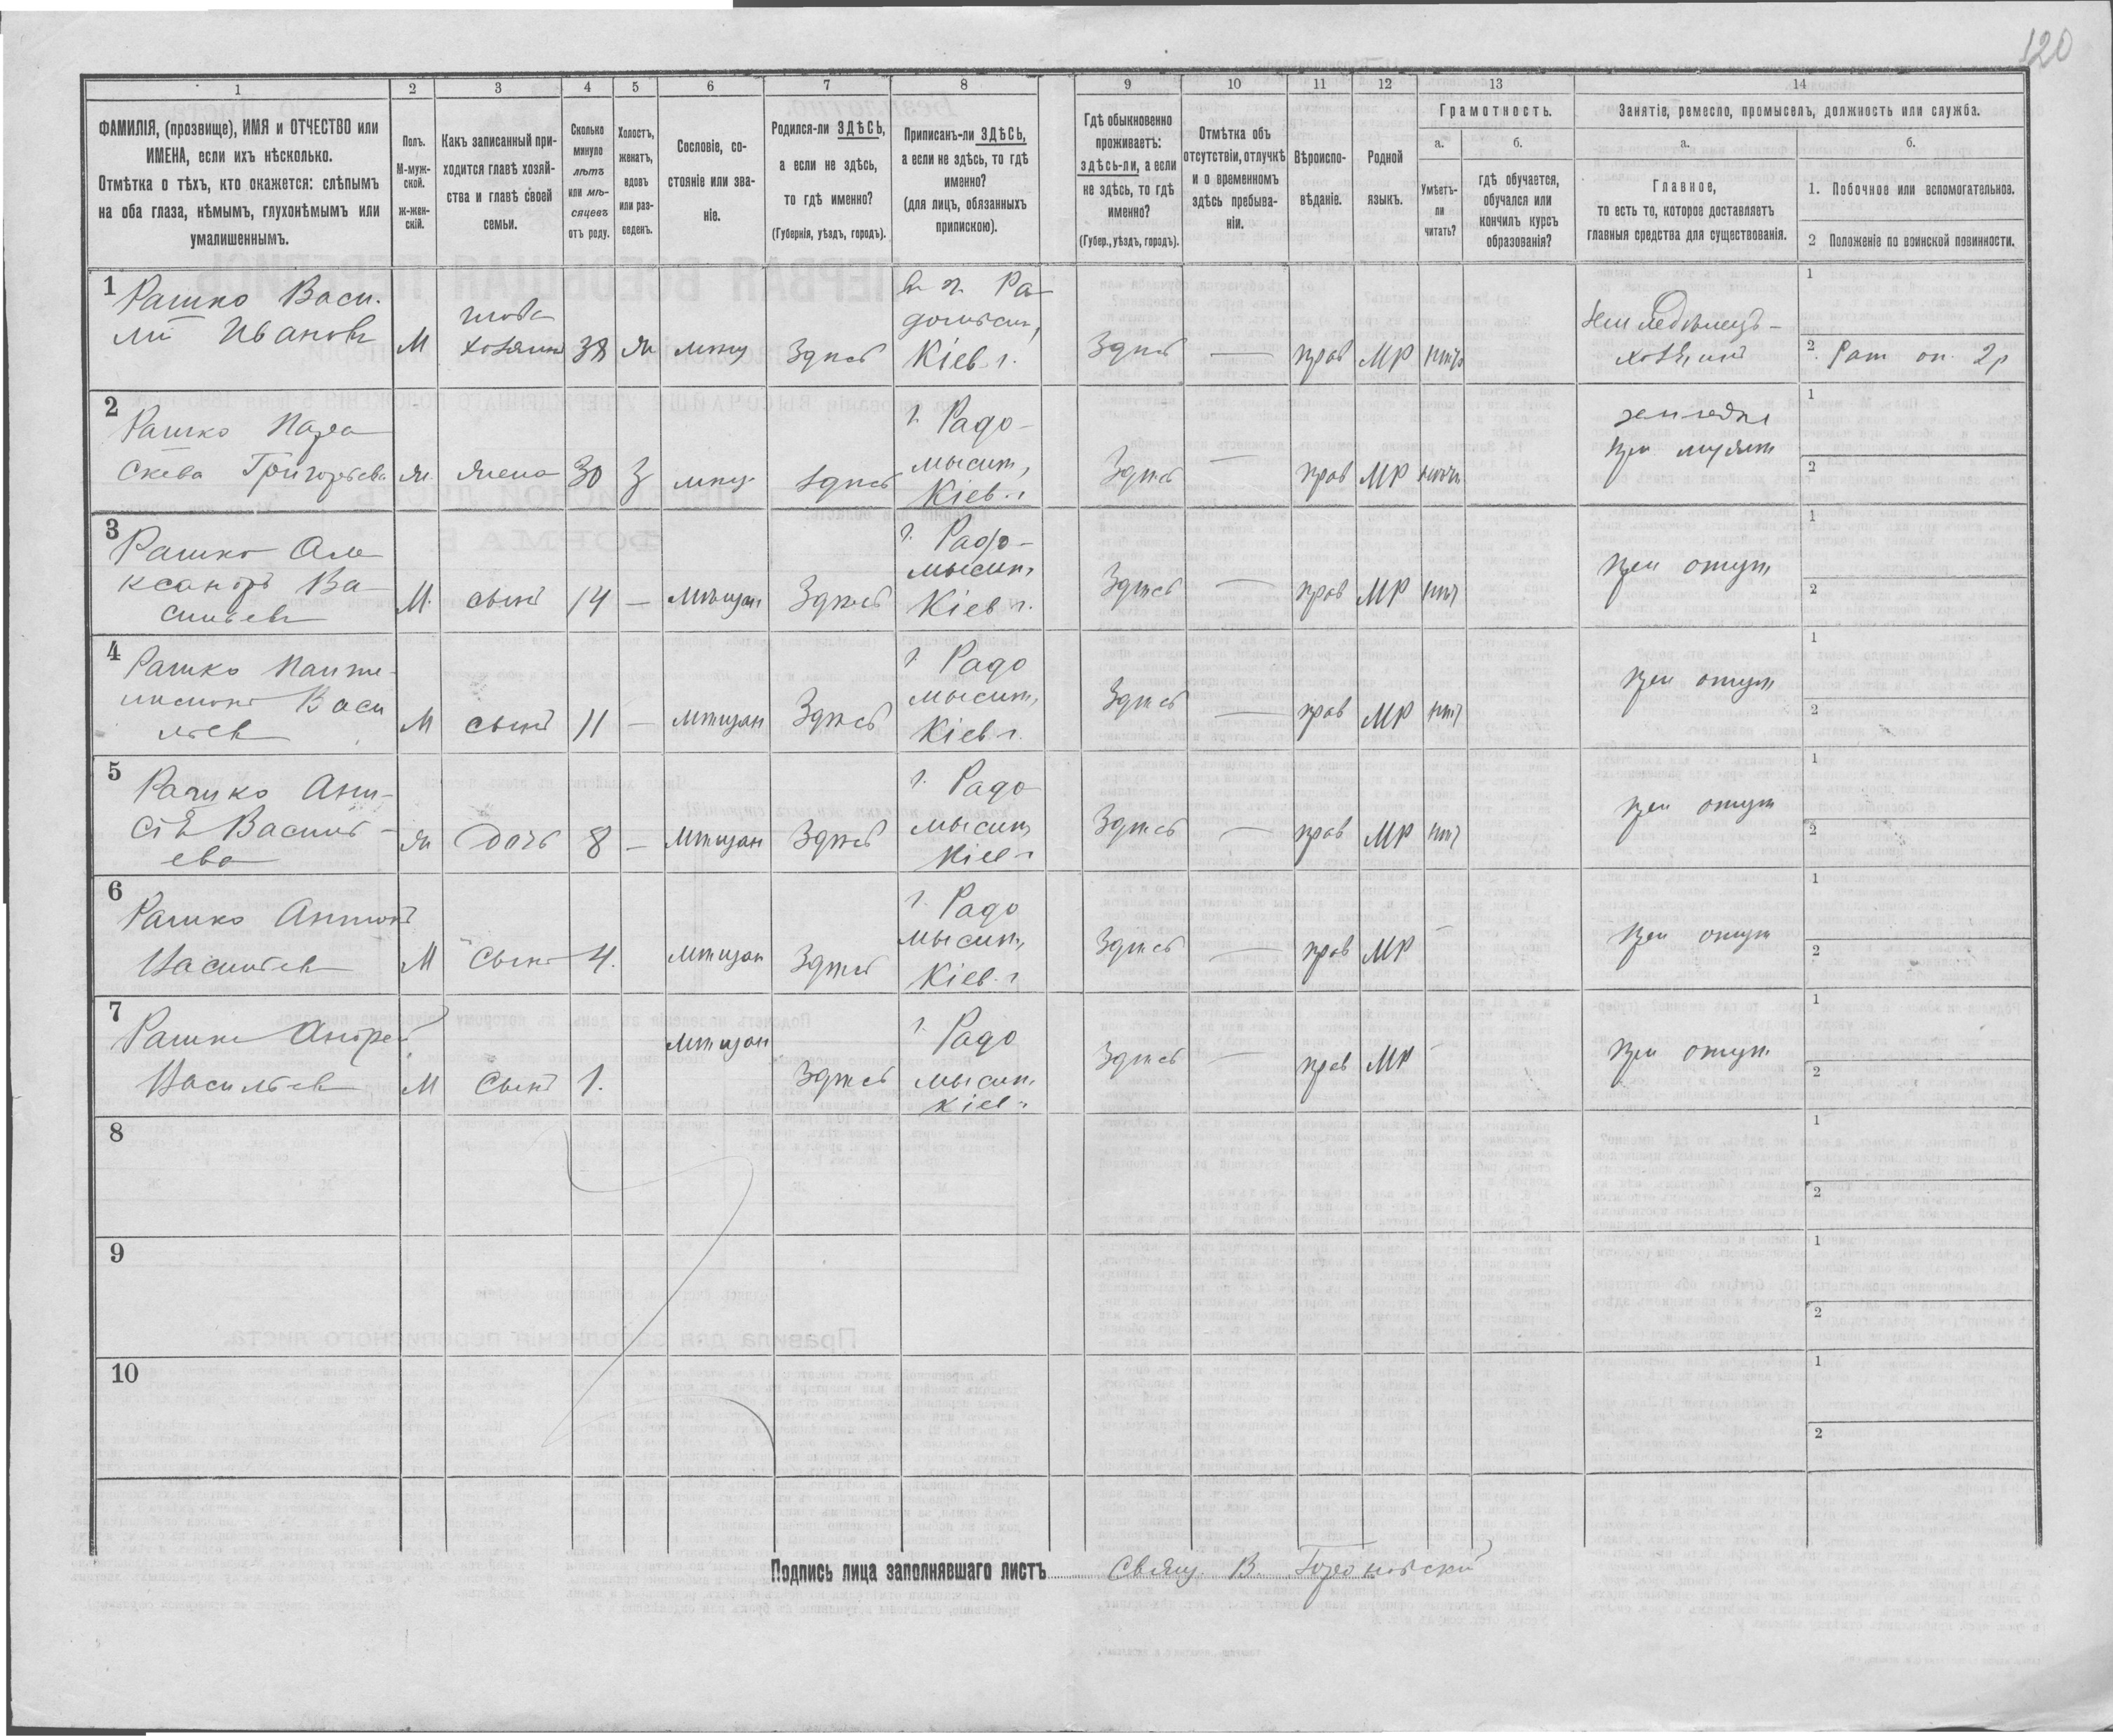 120
1 2 3 4 5 6 7 8 9 10 11 12 13 14
ФАМИЛІЯ, (прозвище), ИМЯ и ОТЧЕСТВО или
ИМЕНА, если ихъ нѣсколько.
Отмѣтка о тѣхъ, кто окажется: слѣпымъ
на оба глаза, нѣмымъ, глухонѣмымъ или
умалишеннымъ.
Полъ.
М-муж-
ской.
ж-жен-
скій.
Какъ записанный при-
ходится главѣ хозяй-
ства и главѣ своей
семьи.
Сколько
минуло
лѣтъ
или мѣ-
сяцевъ
отъ роду.
Холостъ,
женатъ,
вдовъ
или раз-
веденъ.
Сословіе, со-
стояніе или зва-
ніе.
Родился-ли ЗДѢСЬ,
а если не здѣсь,
то гдѣ именно?
(Губернія, уѣздъ, городъ).
Приписанъ-ли ЗДѢСЬ,
а если не здѣсь, то гдѣ
именно?
(для лицъ, обязанныхъ
припискою).
Гдѣ обыкновенно
проживаетъ:
здѣсь-ли, а если
не здѣсь, то гдѣ
именно?
(Губер., уѣздъ, городъ).
Отмѣтка объ
отсутствіи, отлучкѣ
и о временномъ
здѣсь пребыва-
ніи.
Вѣроиспо-
вѣданіе.
Родной
языкъ.
Грамотность.
а.
Умѣетъ-
ли
читать?
б.
гдѣ обучается,
обучался или
кончилъ курсъ
образованія?
Занятіе, ремесло, промыселъ, должность или служба.
а.
Главное,
то есть то, которое доставляетъ
главныя средства для существованія.
б.
1. Побочное или вспомогательное.
2 Положеніе по воинской повинности.
1
Рашко Васи-
лій Ивановъ
М
глава
хозяинъ
38
ж
мѣщ
Здѣсь
в г. Ра-
домысл,
Кіев. г.
Здѣсь
—
прав
МР
нѣтъ
Земледѣлецъ-
хозяинъ
1
2. Рат оп. 2р
2
Рашко Пара-
скева Григорьева
ж.
жена
30
З
мѣщ.
здѣсь
г. Радо-
мысл,
Кіев. г
Здѣсь
—
прав
МР
нѣтъ
земледѣл
при мужѣ
1
2
3
Рашко Але
ксандръ Ва-
сильевъ
М.
сынъ
14
—
мѣщан
Здѣсь
г. Радо-
мысл,
Кіев г.
Здѣсь
—
прав
МР
нѣт
при отцѣ
1
2
4
Рашко Панте-
лимонъ Васи
льев
М
сынъ
11
—
мѣщан
Здѣсь
г. Радо
мысл,
Кіев г.
Здѣсь
—
прав
МР
нѣт
при отцѣ
1
2
5
Рашко Ани-
сія Василь-
ева
ж
дочь
8
—
мѣщан
Здѣсь
г. Радо
мысл,
Кіев г
Здѣсь
—
прав
МР
нѣт
при отцѣ
1
2
6
Рашко Антонъ
Васильев
М
Сынъ
4.
мѣщан
Здѣсь
г. Радо
мысл,
Кіев. г
Здѣсь
—
прав
МР
—
при отцѣ
1
2
7
Рашко Андрей
Васильев
М
Сынъ
1.
мѣщан
Здѣсь
г. Радо
мысл.
Кіев г.
Здѣсь
—
прав
МР
—
при отцѣ
1
2
8
1
2
9
1
2
10
1
2
Подпись лица заполнявшаго листъ Свящ. В.